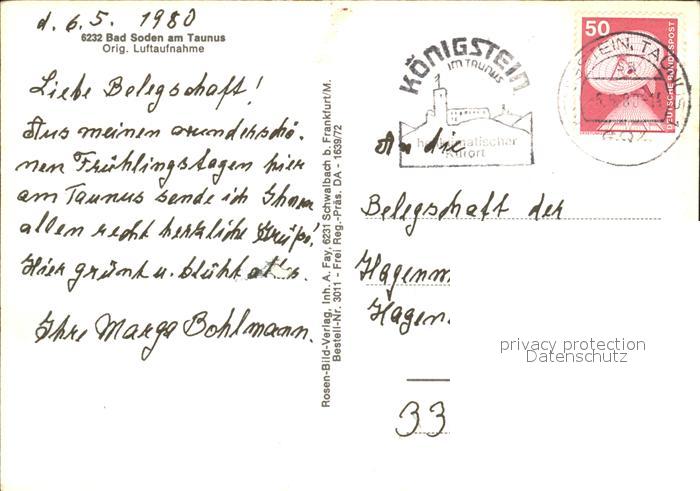 d. 6.5. 1980
6232 Bad Soden am Taunus
Orig. Luftaufnahme
Liebe Belegschaft!
Aus meinen wunderschö-
nen Frühlingstagen hier
am Taunus sende ich Ihnen
allen recht herzliche Grüße!
Hier grünt u. blüht alles.
Ihre Marga Bohlmann.
Rosen-Bild-Verlag, Inh. A. Fay, 6231 Schwalbach b. Frankfurt/M.
Bestell-Nr. 3011 - Frei Reg.-Präs. DA - 1639/72
KÖNIGSTEIN
IM TAUNUS
heilklimatischer
Kurort
50
DEUTSCHE BUNDESPOST
An die
Belegschaft der
Hagenm
Hagen.
33
privacy protection
Datenschutz